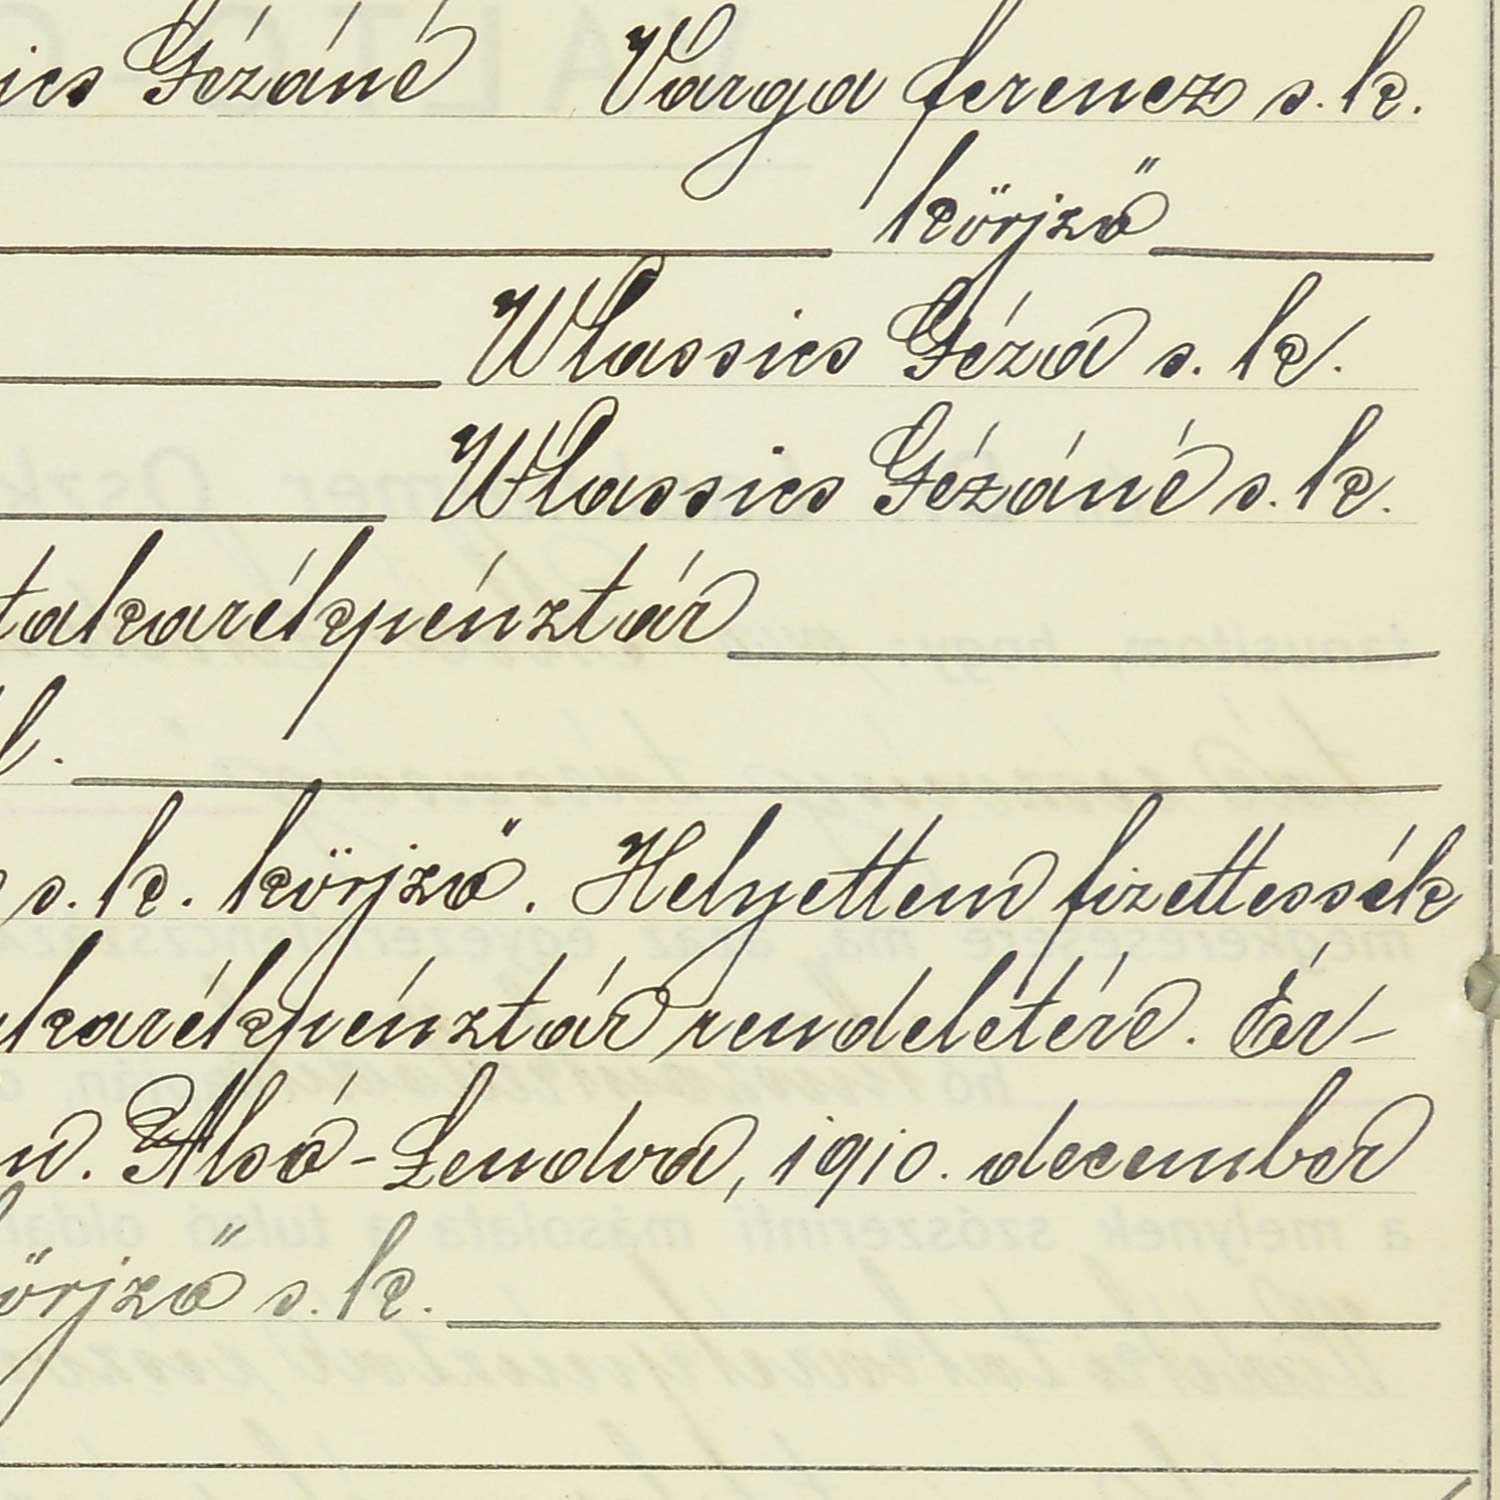 ics Gézáné Varga ferencz s. k.
körjző
Wlassics Géza s. k.
Wlassics Gézáné s. k.
takarékpénztár
l.
s. k. körjző. Helyettem fizettessék
karékpénztár rendeletére. Ér-
n. Alsó-Lendva, 1910. december
örjző s. k.